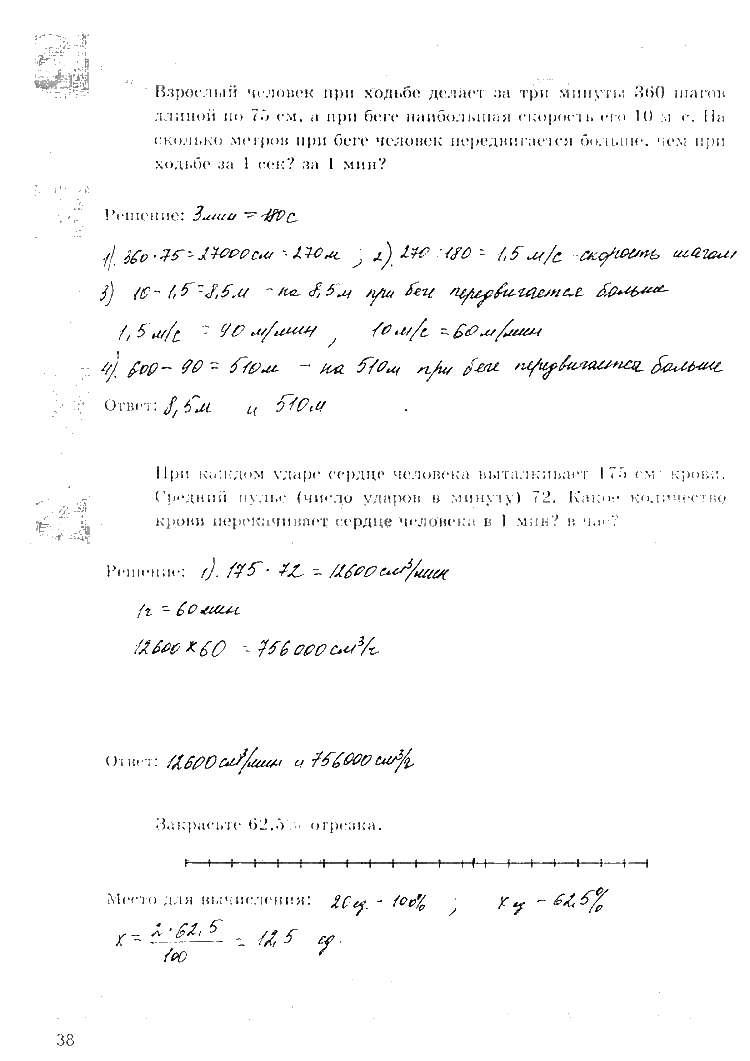 Взрослый человек при ходьбе делает за три минуты 360 шагов
длиной по 75 см, а при беге наибольшая скорость его 10 м/с. На
сколько метров при беге человек передвигается больше, чем при
ходьбе за 1 сек? за 1 мин?
Решение: 3 мин = 180 с
1). 360 · 75 = 27000 см = 270 м ; 2). 270 : 180 = 1,5 м/с - скорость шагом
3) 10 - 1,5 = 8,5 м - на 8,5 м при беге передвигается больше
1,5 м/с = 90 м/мин , 10 м/с = 60 м/мин
4). 600 - 90 = 510 м - на 510 м при беге передвигается больше
Ответ: 8,5 м и 510 м
При каждом ударе сердце человека выталкивает 175 см³ крови.
Средний пульс (число ударов в минуту) 72. Какое количество
крови перекачивает сердце человека в 1 мин? в час?
Решение: 1). 175 · 72 = 12600 см³/мин
1ч = 60 мин
12600 × 60 = 756 000 см³/ч
Ответ: 12600 см³/мин и 756000 см³/ч
Закрасьте 62,5% отрезка.
Место для вычисления: 20 ед. - 100% ; x ед - 62,5%
x = 2 · 62,5 / 100 = 12,5 ед.
38